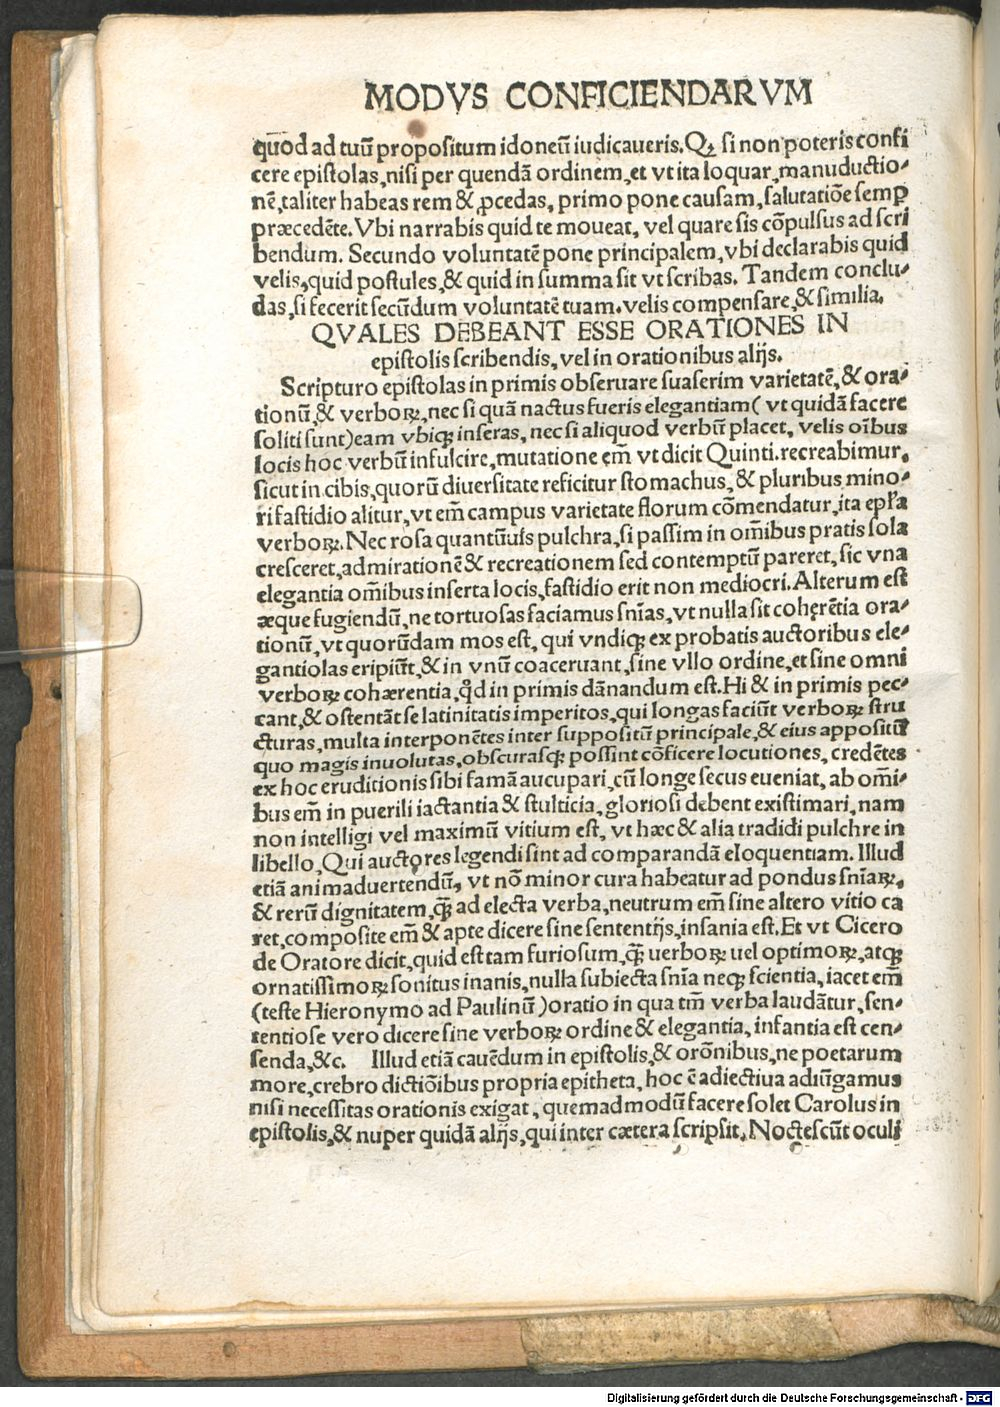 MODVS CONFICIENDARVM
quod ad tuū propositum idoneū iudicaueris. Qꝫ si non poteris confi
cere epistolas, nisi per quendā ordinem, et vt ita loquar, manuductio⸗
nē, taliter habeas rem & ꝓcedas, primo pone causam, salutatiōe semꝑ
præcedēte. Vbi narrabis quid te moueat, vel quare sis cōpulsus ad scri
bendum. Secundo voluntatē pone principalem, vbi declarabis quid
velis, quid postules, & quid in summa sit vt scribas. Tandem conclu⸗
das, si fecerit secūdum voluntatē tuam. velis compensare, & similia.
QVALES DEBEANT ESSE ORATIONES IN
epistolis scribendis, vel in orationibus alijs.
Scripturo epistolas in primis obseruare suaserim varietatē, & ora⸗
tionū, & verboꝝ, nec si quā nactus fueris elegantiam ( vt quidā facere
soliti sunt) eam vbiqꝫ inseras, nec si aliquod verbū placet, velis oībus
locis hoc verbū infulcire, mutatione em̄ vt dicit Quinti. recreabimur,
sicut in cibis, quorū diuersitate reficitur stomachus, & pluribus mino⸗
ri fastidio alitur, vt em̄ campus varietate florum cōmendatur, ita epľa
verboꝝ. Nec rosa quantūuis pulchra, si passim in om̄ibus pratis sola
cresceret, admirationē & recreationem sed contemptū pareret, sic vna
elegantia om̄ibus inserta locis, fastidio erit non mediocri. Alterum est
æque fugiendū, ne tortuosas faciamus sn̄ias, vt nulla sit coherētia ora⸗
tionū, vt quorūdam mos est, qui vndiqꝫ ex probatis auctoribus ele⸗
gantiolas eripiūt, & in vnū coaceruant, sine vllo ordine, et sine omni
verboꝝ cohærentia, qd̄ in primis dānandum est. Hi & in primis pec⸗
cant, & ostentāt se latinitatis imperitos, qui longas faciūt verboꝝ stru
cturas, multa interponētes inter suppositū principale, & eius appositū
quo magis inuolutas, obscurasqꝫ possint cōficere locutiones, credētes
ex hoc eruditionis sibi famā aucupari, cū longe secus eueniat, ab om̄i⸗
bus em̄ in puerili iactantia & stulticia, gloriosi debent existimari, nam
non intelligi vel maximū vitium est, vt hæc & alia tradidi pulchre in
libello, Qui auctores legendi sint ad comparandā eloquentiam. Illud
etiā animaduertendū, vt nō minor cura habeatur ad pondus sn̄iaꝝ,
& rerū dignitatem, qꝫ̄ ad electa verba, neutrum em̄ sine altero vitio ca
ret, composite em̄ & apte dicere sine sententijs, insania est. Et vt Cicero
de Oratore dicit, quid est tam furiosum, qꝫ̄ uerboꝝ uel optimoꝝ, atqꝫ
ornatissimoꝝ sonitus inanis, nulla subiecta sn̄ia neqꝫ scientia, iacet em̄
(teste Hieronymo ad Paulinū ) oratio in qua tm̄ verba laudātur, sen⸗
tentiose vero dicere sine verboꝝ ordine & elegantia, infantia est cen⸗
senda, &c. Illud etiā cauēdum in epistolis, & orōnibus, ne poetarum
more, crebro dictiōibus propria epitheta, hoc ē adiectiua adiūgamus
nisi necessitas orationis exigat, quemadmodū facere solet Carolus in
epistolis, & nuper quidā alijs, qui inter cætera scripsit. Noctescūt oculi
Digitalisierung gefördert durch die Deutsche Forschungsgemeinschaft - DFG